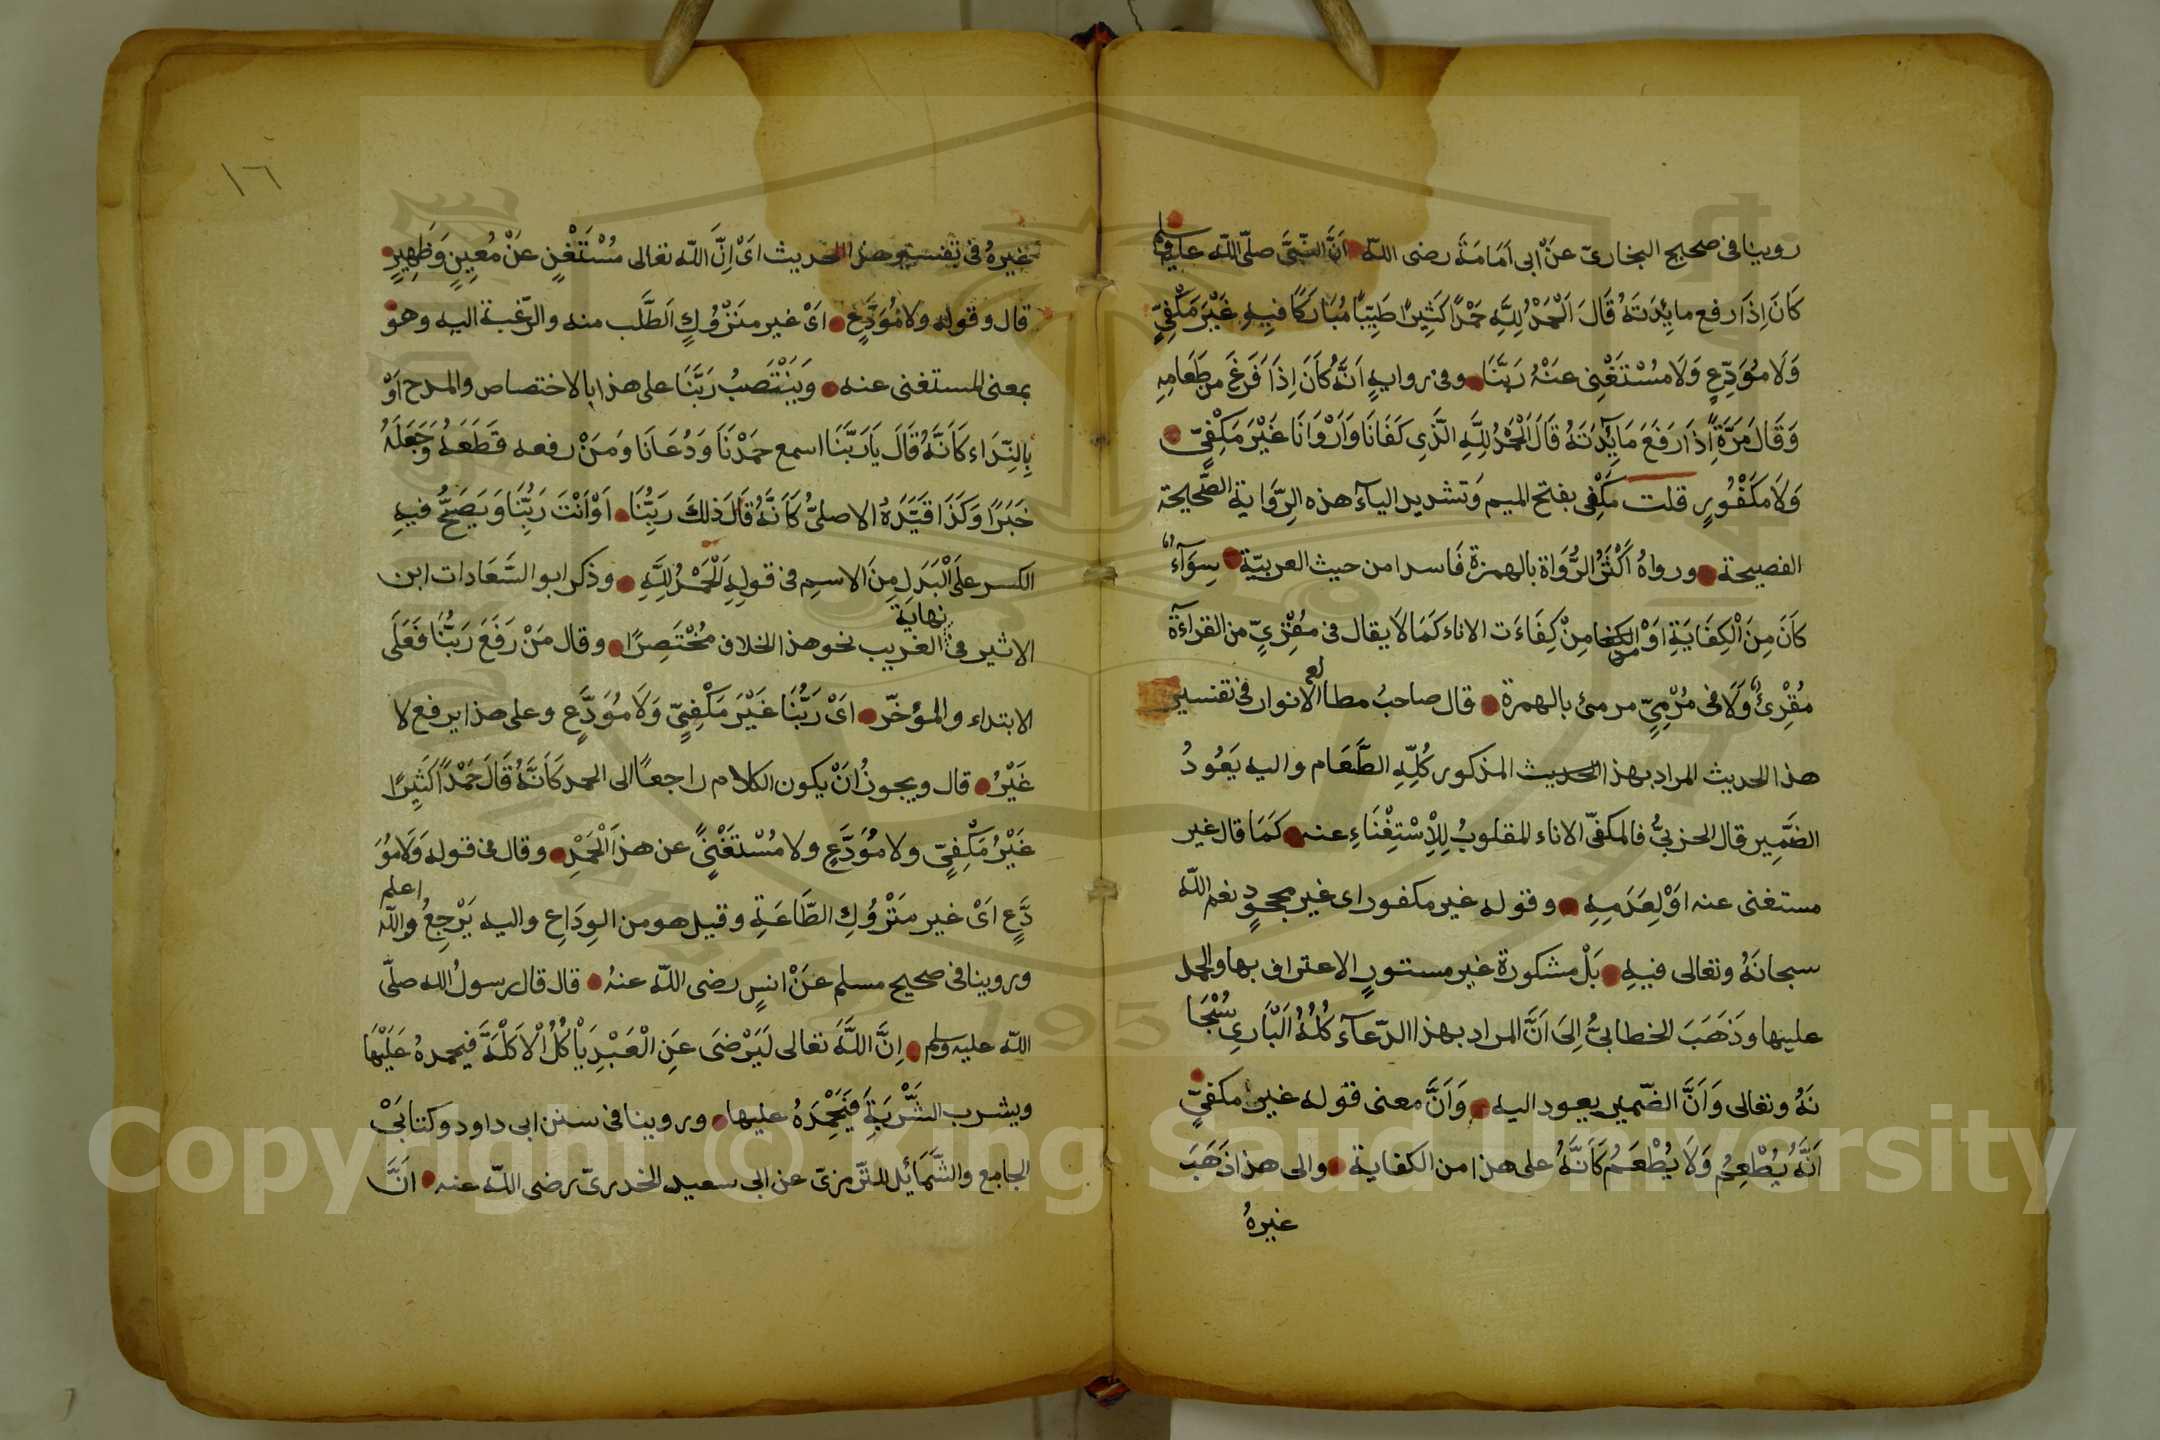 روينا فى صحيح البخارىّ عَنْ ابى اَمَامَةَ رضى اللّه اَنَّ النَّبىَّ صلّى اللّه عليه وسلم
كَانَ اِذَا رفع مائِدَتَهُ قَالَ اَلْحَمْدُ لِلَّهِ حَمْدًا كَثِيْرًا طَيِّبًا مُبَارَكًا فِيهِ غَيْرَ مَكْفِىٍّ
وَلَا مُوَدَّعٍ وَلَا مُسْتَغْنِى عَنْهُ رَبَّنَا وفى روايةٍ اَنَّهُ كَانَ اِذَا فَرَغَ من طَعَامِهِ
وَقَالَ مَرَّةً اِذَا رَفَعَ مَائِدَتَهُ قَالَ الْحَمْدُ لِلَّهِ الَّذِى كَفَانَا وَاَرْوَانَا غَيْرَ مَكْفِىٍّ
وَلَا مَكْفُورٍ قلت مَكْفِى بفتح الميم وَتشديد اليآءَ هذه الرِّوَاية الصَّحيحة
الفصيحة ورواهُ اَكْثَرُ الرُّوَاة بالهمزة فَاسد امن حيث العربيّة سِوَآءً
كَانَ مِنَ الْكِفَايَةِ اَوْ مِنْ كَفَاءَت الاناء كَمَا لا يقال فى مقْرِىٍّ من القرآءَة
مُقْرِئٌ وَلَا فى مُرْمِىٍّ مرمئ بالهمزة قال صاحبُ مطالع الانوار فى تفسير
هذا الحديث المراد بهذا الحديث المذكور كُلِّهِ الطَّعَام واليه يَعُودُ
الضَّمِير قال الحربىُّ فالمكفىّ الاناء المقلوبُ لِلْاِسْتِغْنَاءِ عنه كَمَا قال غير
مستغنى عنه اَوْ لِعَدَمِهِ وقوله غير مكفور اى غير مجحودٍ نعم اللّه
سبحانَهُ وتعالى فيهِ بَلْ مشكورة غير مستورٍ الاعتراف بها والحمد
عليها وَذَهَبَ الخطابىُّ اِلَى اَنَّ المراد بهذا الدّعآءَ كُلِّهُ اَلْبَارِى سُبْحَا
نَهُ وتعالى وَاَنَّ الضّمير يعود اليه وَاَنَّ معنى قوله غير مكفىٍّ
اَنَّهُ يُطْعِمُ وَلَا يُطْعَمُ كَاَنَّهُ على هذا من الكفاية والى هذا ذَهَبَ
غيرهُ
١٦
غيرهُ فى تفسير هذا الحديث اَىْ اِنَّ اللّه تعالى مُسْتَغْنٍ عَنْ مُعِينٍ وَظَهِيرٍ
قال وقوله ولا مُوَدَّعٍ اَىْ غير مَتْرُوكٍ الطَّلَب منه والرّغبة اليه وهو
بمعنى المستغنى عنه وَيَنْتَصِبُ رَبَّنَا على هذا بالاختصاص والمدح اَوْ
بِالنِّدَاء كَاَنَّهُ قَالَ يَا رَبَّنَا اسمع حَمْدَنَا وَدُعَانَا وَمَنْ رفعه قَطَعَهُ وَجَعَلَهُ
خَبَرًا وَكَذَا قَيَّدَهُ الاصلىُّ كَاَنَّهُ قَالَ ذلِكَ رَبُّنَا اَوْ اَنْتَ رَبُّنَا وَيَصِحُّ فيهِ
الكسر علَى الْبَدَلِ مِنَ الاسمِ فى قولِهِ اَلْحَمْدُ لِلَّهِ وذكر ابو السَّعَادات ابن
الاثير فى نهاية الغريب نحو هذا الخلاف مُخْتَصِرًا وقال مَنْ رَفَعَ رَبُّنَا فَعَلَى
الابتداء والمؤخّر اَىْ رَبُّنَا غَيْرَ مَكْفِىٍّ وَلَا مُوَدَّعٍ وعلى هذا يرفع لا
غَيْرُ قال ويجوزُ اَنْ يكون الكلام راجعًا الى الحمد كَاَنَّهُ قَالَ حَمْدًا كَثِيْرًا
غَيْرُ مَكْفِىٍّ ولا مُوَدَّعٍ ولا مُسْتَغْنًى عن هذَا الْحَمْدِ وقال فى قوله وَلَا مُوَ
دَّعٍ اَىْ غير مَتْرُوكِ الطَّاعَةِ وقيل هو من الوِدَاعِ واليه يَرْجِعُ واللّه اعلم
وروينا فى صحيح مسلم عَنْ انسٍ رضى اللّه عنهُ قال قال رسولُ اللّه صلّى
اللّه عليه وسلم اِنَّ اللَّهَ تعالى لَيَرْضَى عَنِ الْعَبْدِ يَاْكُلُ الْاَكْلَةَ فيحمدهُ عَلَيْهَا
ويشرب الشَّرْبَةَ فَيَحْمَدَهُ عليها وروينا فى سنن ابى داود وكتابَىْ
الجامع والشَّمَائِل للتّرمزىّ عن ابى سعيد الخدرىّ رضى اللّه عنه اَنَّ
Copyright © King Saud University